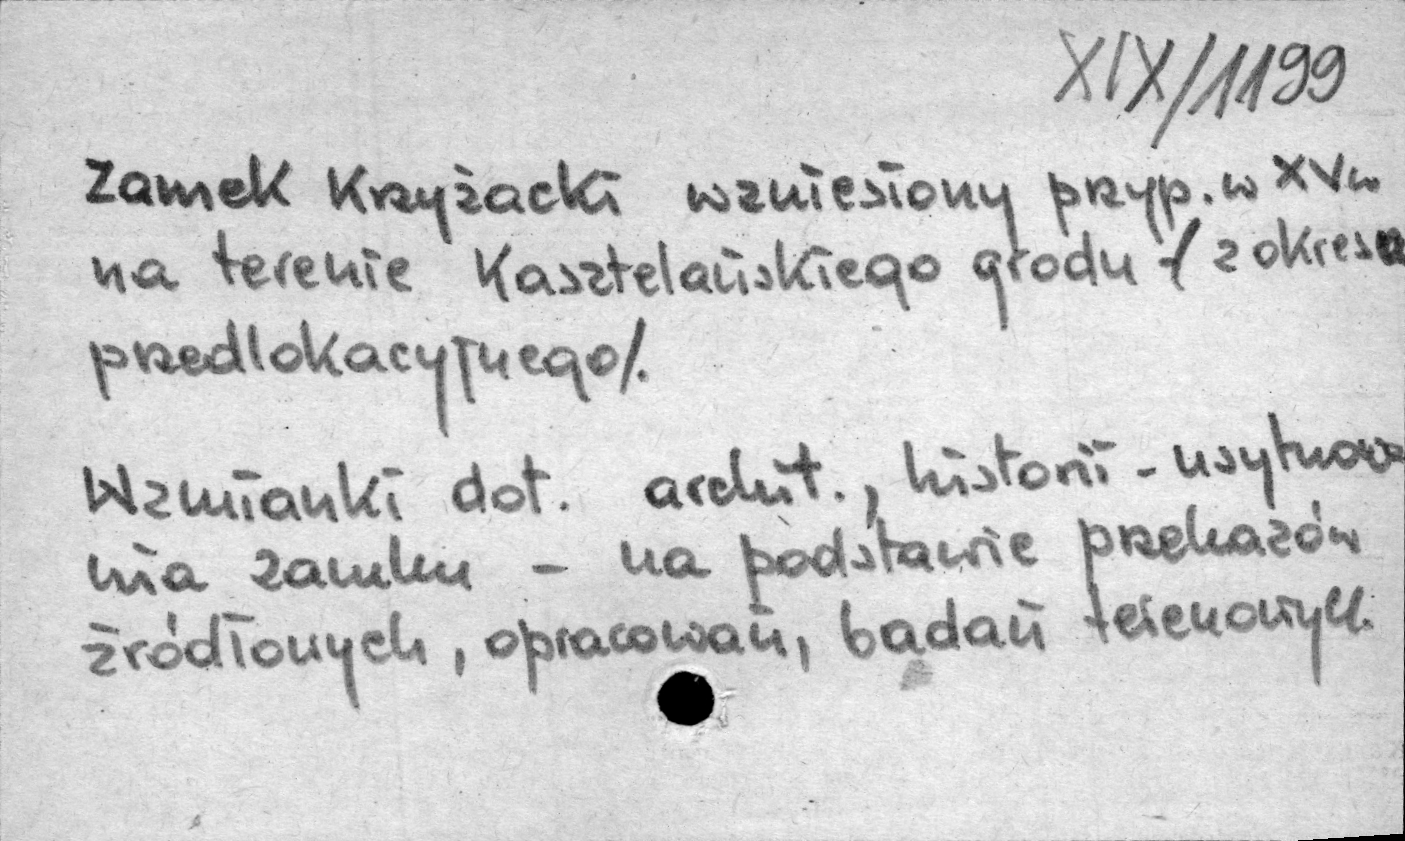 XIX/1199
Zamek Krzyżacki wzniesiony przyp. w XVw
na terenie Kasztelańskiego grodu - / z okresu
przedlokacyjnego/.
Wzmianki dot. archit., historii - usytuowa
nia zamku - na podstawie przekazów
źródłowych, opracowań, badań terenowych.